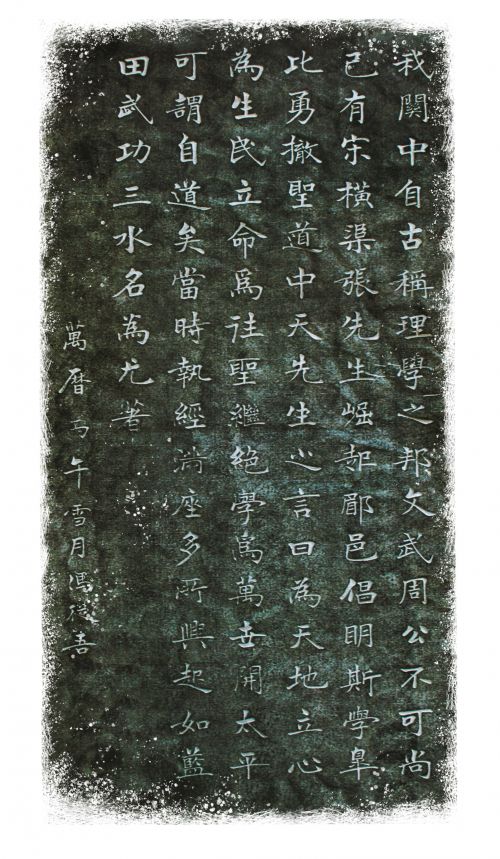 我関中自古稱理學之邦文武周公不可尚
已有宋橫渠張先生崛起郿邑倡明斯學皐
比勇撤聖道中天先生之言曰為天地立心
為生民立命爲往聖繼絶學爲萬世開太平
可謂自道矣當時執經滿座多所興起如藍
田武功三水名為尤著
萬暦丙午雪月馮從善